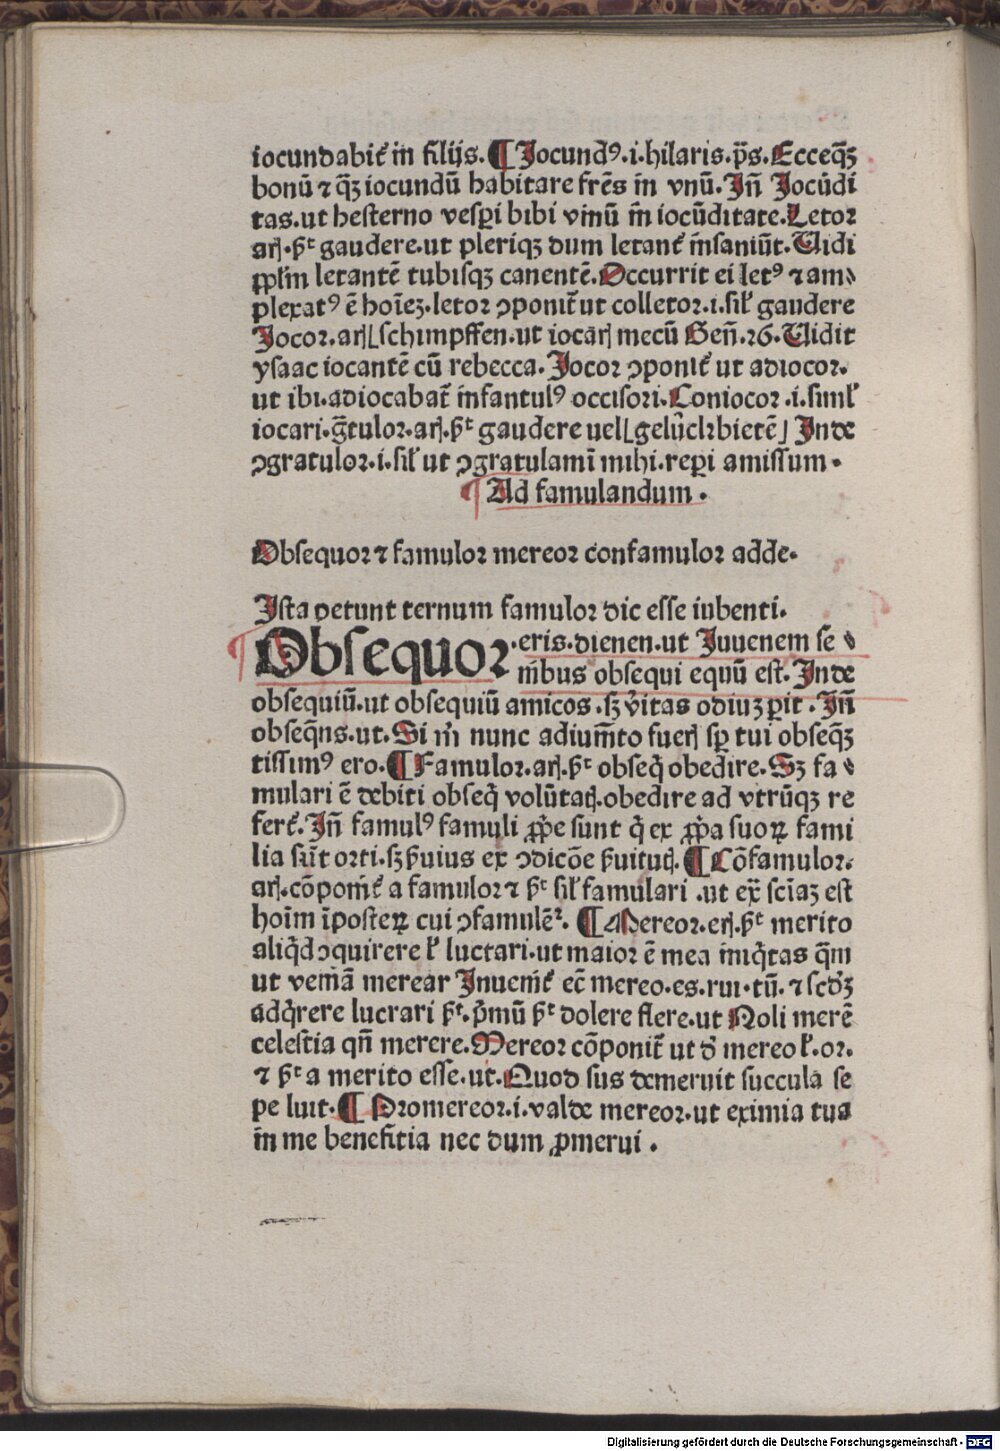 iocundabit᷑ in filijs.¶Jocundꝰ.i.hilaris.p̄s.Ecceq̄ꝫ
bonū ⁊ q̄ꝫ iocundū habitare fr̄es in vnū.Jn̄ Jocūdi
tas.ut hesterno vesꝑi bibi vinū in iocūditate.Letor
arꝭ.h̄t gaudere.ut pleriqꝫ dum letant᷑ insaniūt.Uidi
pp̄lm letantē tubisqꝫ canentē.Occurrit ei letꝰ ⁊ am⸗
plexatꝰ ē hoīeꝫ.letor ꝯponit᷑ ut colletor.i.sil̄ gaudere
Jocor.arꝭ schimpffen.ut iocarꝭ mecū Gen̄.26.Uidit
ysaac iocantē cū rebecca.Jocor ꝯponit᷑ ut adiocor.
ut ibi.adiocabat᷑ infantulꝰ occisori.Coniocor.i.simł
iocari.gr̄tulor.arꝭ.h̄t gaudere uel gelucḱbietē Jnde
ꝯgratulor.i.sil̄ ut ꝯgratulamī mihi.reꝑi amissum.
¶ Ad famulandum.
Obsequor ⁊ famulor mereor confamulor adde.
Jsta petunt ternum famulor dic esse iubenti.
Obsequor.eris.dienen.ut Juuenem se⸗
nibus obsequi equū est.Jnde
obsequiū.ut obsequiū amicos.sꝫ v̄itas odiuꝫ ꝑit.Jn̄
obseq̄ns.ut.Si m̄ nunc adium̄to fuerꝭ sꝑ tui obseqꝫ
tissimꝰ ero.¶Famulor.arꝭ.h̄t obseq̄ obedire.Sꝫ fa⸗
mulari ē debiti obseq̄ volūtatꝭ.obedire ad vtrūqꝫ re
fert᷑.Jn̄ famulꝰ famuli ꝓp̄e sunt q̄ ex ꝓp̄a suoꝝ fami
lia sūt orti.sꝫ ẜuius ex ꝯdicōe ẜuitutꝭ.¶Cōfamulor.
arꝭ.cōponit᷑ a famulor ⁊ h̄t sil̄ famulari.ut ex̄ sciāꝫ est
hoīm īposteꝝ cui ꝯfamulēr.¶Mereor.erꝭ.h̄t merito
aliq̄d ꝯquirere ł luctari.ut maior ē mea iniq̄tas q̄m
ut veniā merear Jnuenit᷑ ec̄ mereo.es.rui.tū.⁊ scd̄ꝫ
adq̄rere lucrari h̄t.p̄mū h̄t dolere flere.ut Noli merē
celestia qn̄ merere.Mereor cōponit᷑ ut d̓ mereo ł.or.
⁊ h̄t a merito esse.ut.Quod sus demeruit succula se
pe luit.¶Promereor.i.valde mereor.ut eximia tua
in me benefitia nec dum ꝓmerui.
Digitalisierung gefördert durch die Deutsche Forschungsgemeinschaft - DFG